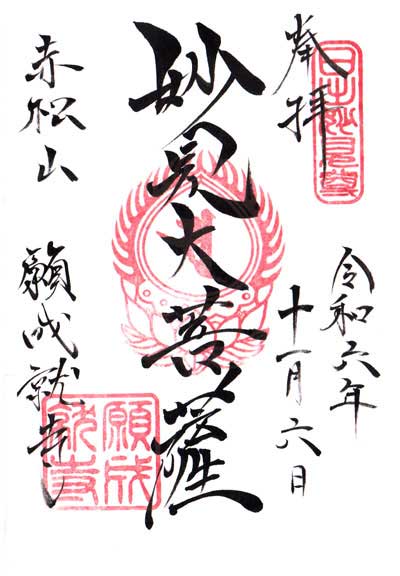 奉拝
令和六年
十一月六日
妙見大菩薩
赤松山
願成就寺
願成
就寺